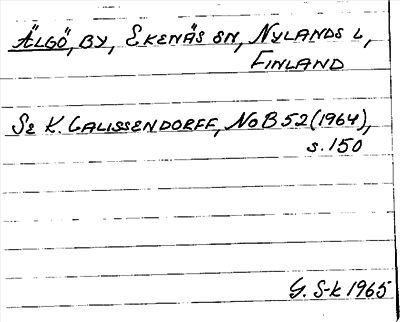 ÄLGÖ, BY, EKENÄS SN, NYLANDS L,
FINLAND
SE K. CALISSENDORFF, NoB 52 (1964),
s. 150
G. S-k 1965